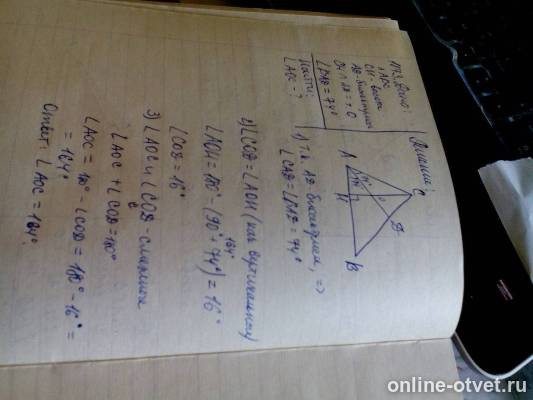 №3. Дано:
△ABC
CH - высота
AD - биссектриса
CH ∩ AD = т. O
∠BAD = 74°
Найти:
∠AOC - ?
Решение:
C
74°
D
A
H
B
1) Т.к. AD - биссектриса, =>
∠CAD = ∠BAD = 74°
2) ∠COD = ∠AOH (как вертикальные)
164°
∠AOH = 180° - (90° + 74°) = 16°
∠COD = 16°
3) ∠AOC и ∠COD - смежные
∠AOC + ∠COD = 180°
∠AOC = 180° - ∠COD = 180° - 16° =
= 164°
Ответ: ∠AOC = 164°.
online-otvet.ru